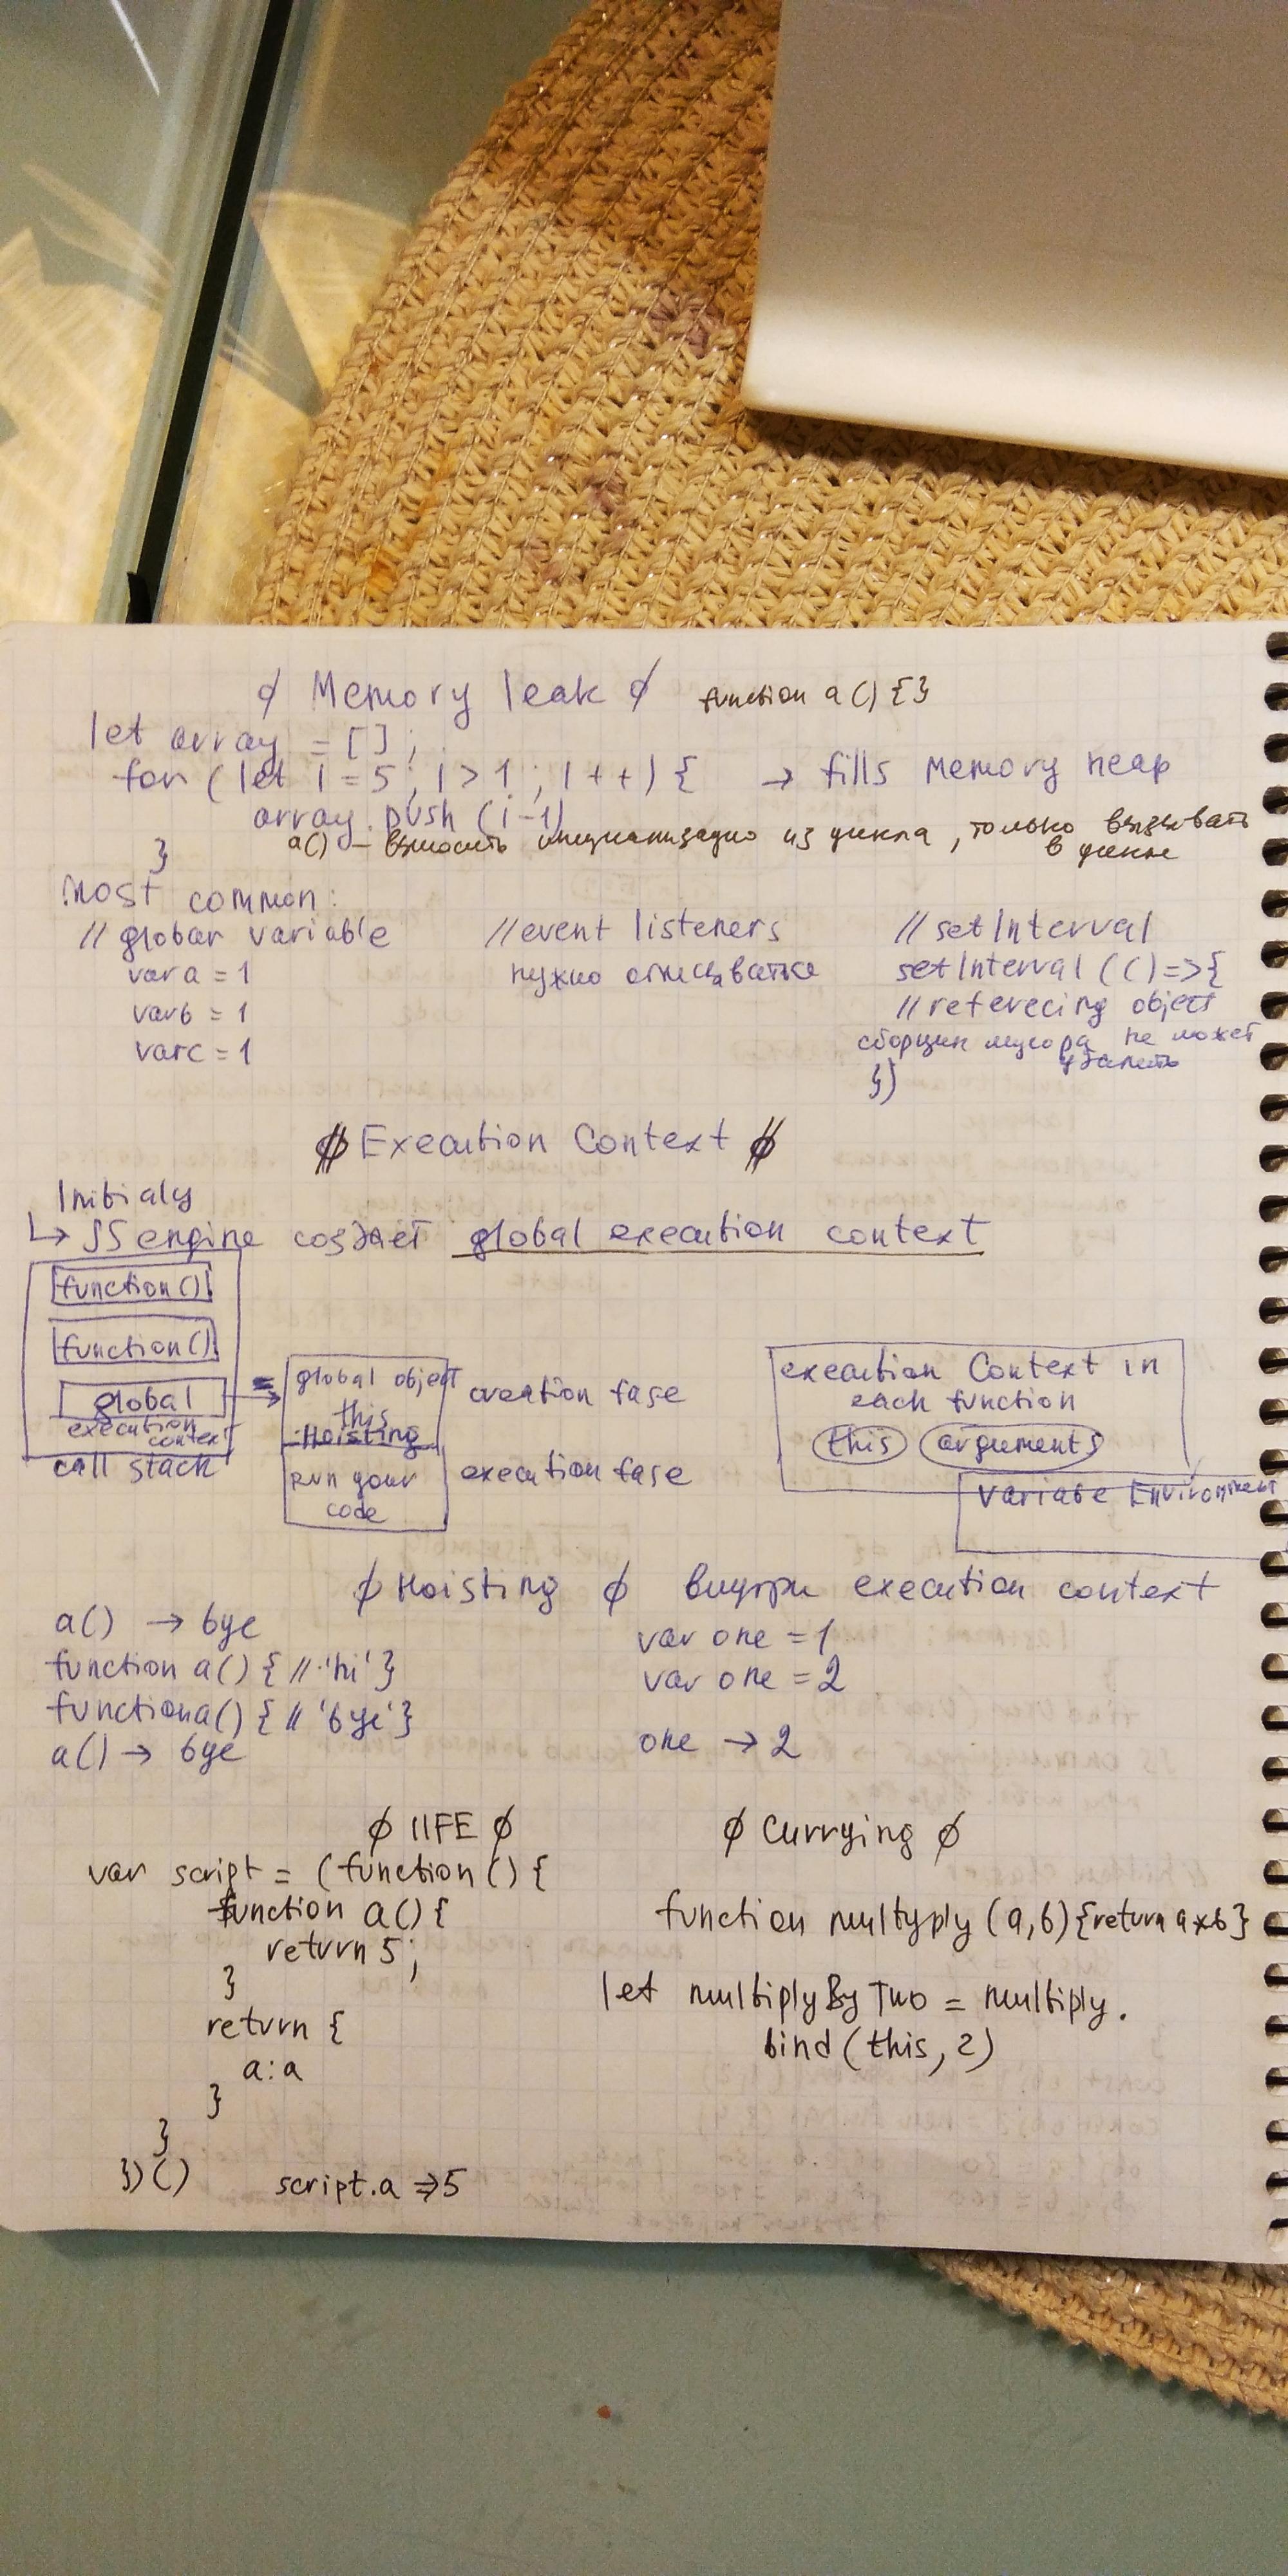 ∅ Memory leak ∅ function a() {}
let array = [];
for (let i = 5; i > 1; i++) { → fills Memory heap
array.push (i-1)
a() – выносить инициализацию из цикла, только вызывать
в цикле
}
Most common:
// global variable
var a = 1
var b = 1
var c = 1
// event listeners
нужно отписываться
// setInterval
setInterval (() => {
// referecing object
сборщик мусора не может
удалить
})
∅ Execution Context ∅
Initialy
↳ JS engine создает global execution context
function()
function()
global
execution
context
call stack
global object
this
Hoisting
creation fase
run your
code
execution fase
execution Context in
each function
this arguments
Variabe Environment
∅ Hoisting ∅ внутри execution context
a() → bye
function a() { // 'hi' }
function a() { // 'bye' }
a() → bye
var one = 1
var one = 2
one → 2
∅ IIFE ∅
var script = (function() {
function a() {
return 5;
}
return {
a: a
}
}
})()
script.a => 5
∅ Currying ∅
function multyply (a,b) {return a*b}
let multiplyByTwo = multiply.
bind (this, 2)